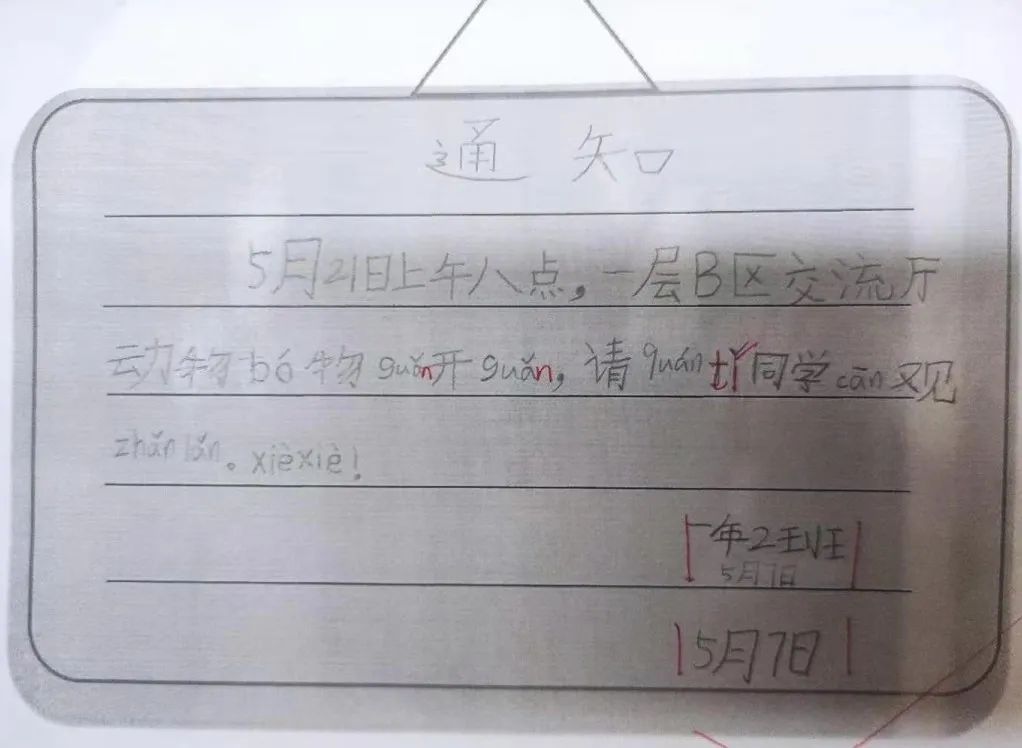 通 知
5月21日上午八点，一层B区交流厅
动物bó物guǎn开guǎn，请quántǐ同学cān观
zhǎnlǎn。xièxiè！
一年2班
5月7日
5月7日